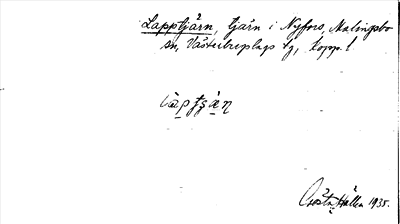 Lapptjärn, tjärn i Nyfors, Malingsbo
sn, Västerbergslags tg, Kopp. l.
Gösta Hallen 1935.